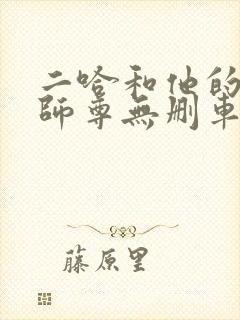 二哈和他的
師尊無刪車
藤原里